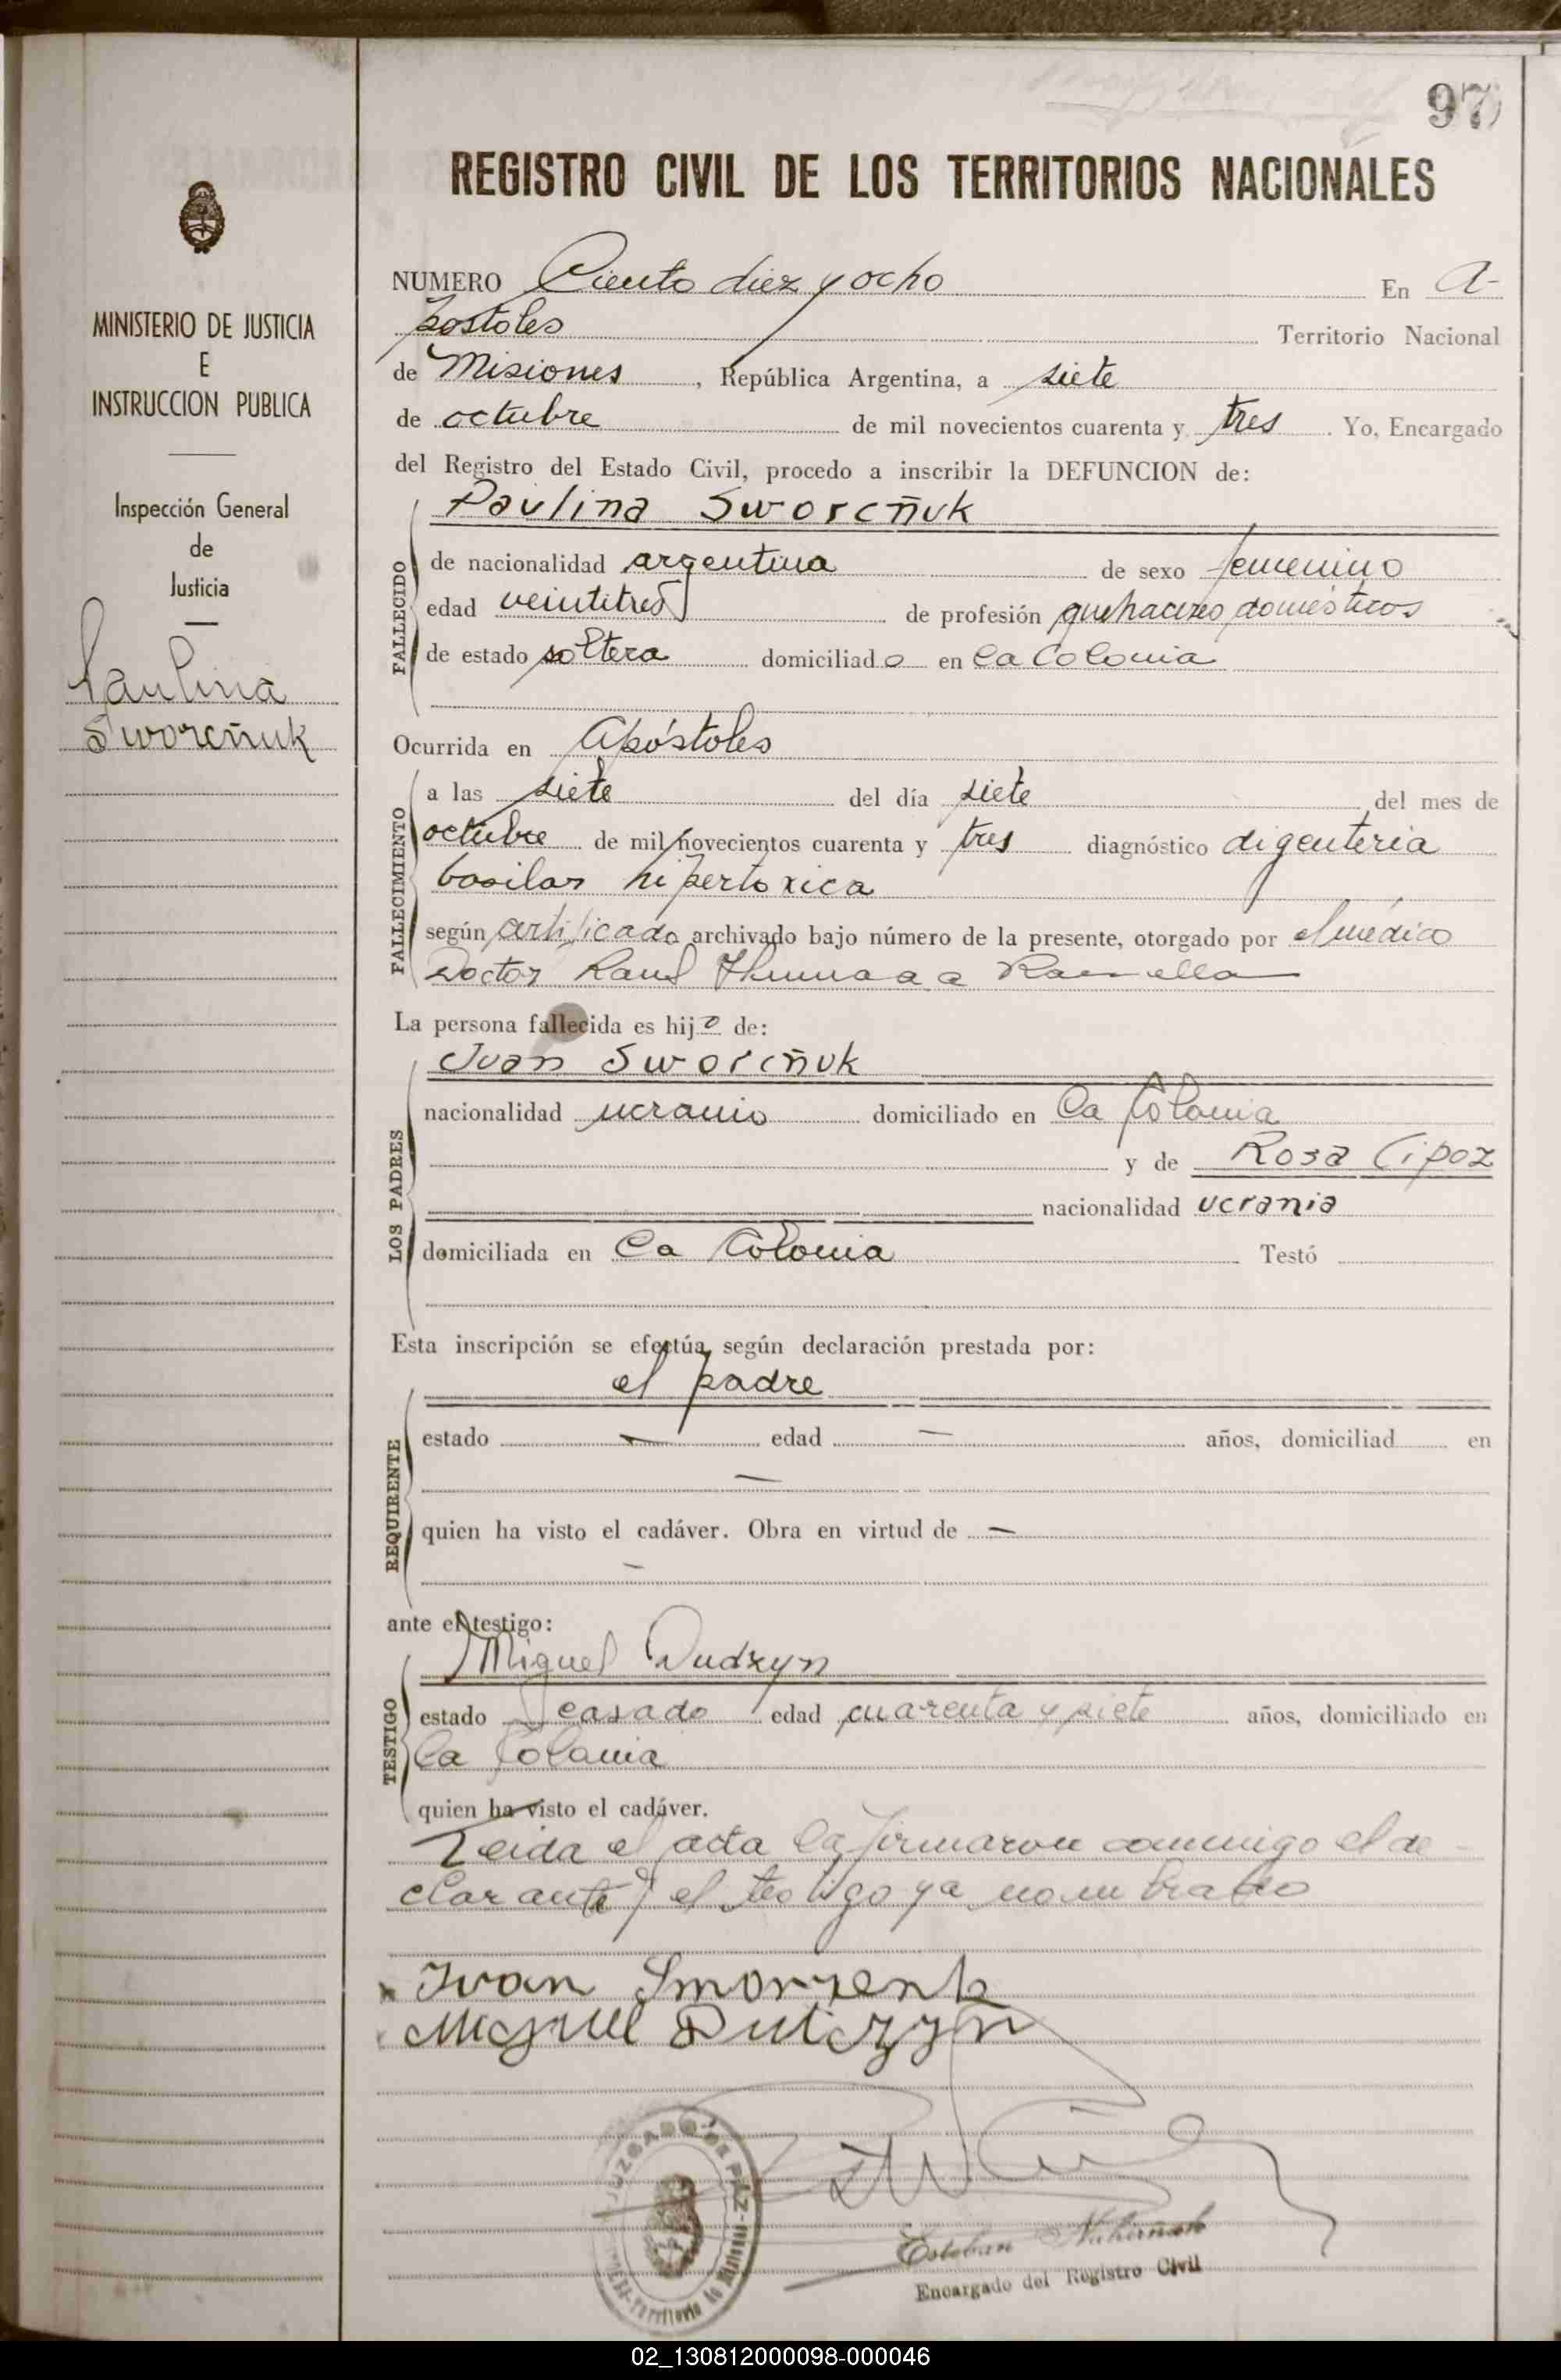 97
REGISTRO CIVIL DE LOS TERRITORIOS NACIONALES
MINISTERIO DE JUSTICIA
E
INSTRUCCION PUBLICA
Inspección General
de
Justicia
Paulina
Sworcñuk
NUMERO Ciento diez y ocho En A-
postoles Territorio Nacional
de Misiones, República Argentina, a siete
de octubre de mil novecientos cuarenta y tres. Yo, Encargado
del Registro del Estado Civil, procedo a inscribir la DEFUNCION de:
Paulina Sworcñuk
FALLECIDO
de nacionalidad argentina de sexo femenino
edad veintitres de profesión quehaceres domésticos
de estado soltera domiciliado en la Colonia
Ocurrida en Apóstoles
FALLECIMIENTO
a las siete del día siete del mes de
octubre de mil novecientos cuarenta y tres diagnóstico digenteria
basilar hipertoxica
según certificado archivado bajo número de la presente, otorgado por el médico
Doctor Raul
La persona fallecida es hijo de:
LOS PADRES
Juan Sworcñuk
nacionalidad ucranio domiciliado en la Colonia
y de Rosa Cipoz
nacionalidad ucrania
domiciliada en la Colonia Testó
Esta inscripción se efectúa según declaración prestada por:
REQUIRENTE
el padre
estado — edad — años, domiciliad en
—
quien ha visto el cadáver. Obra en virtud de —
—
ante el testigo:
TESTIGO
Miguel Dudzyn
estado casado edad cuarenta y siete años, domiciliado en
la Colonia
quien ha visto el cadáver.
Leida el acta la firmaron conmigo el de-
clarante y el testigo ya nombrado
Iwan
Miguel
JUZGADO DE PAZ
Territorio de Misiones
Esteban
Encargado del Registro Civil
02_130812000098-000046